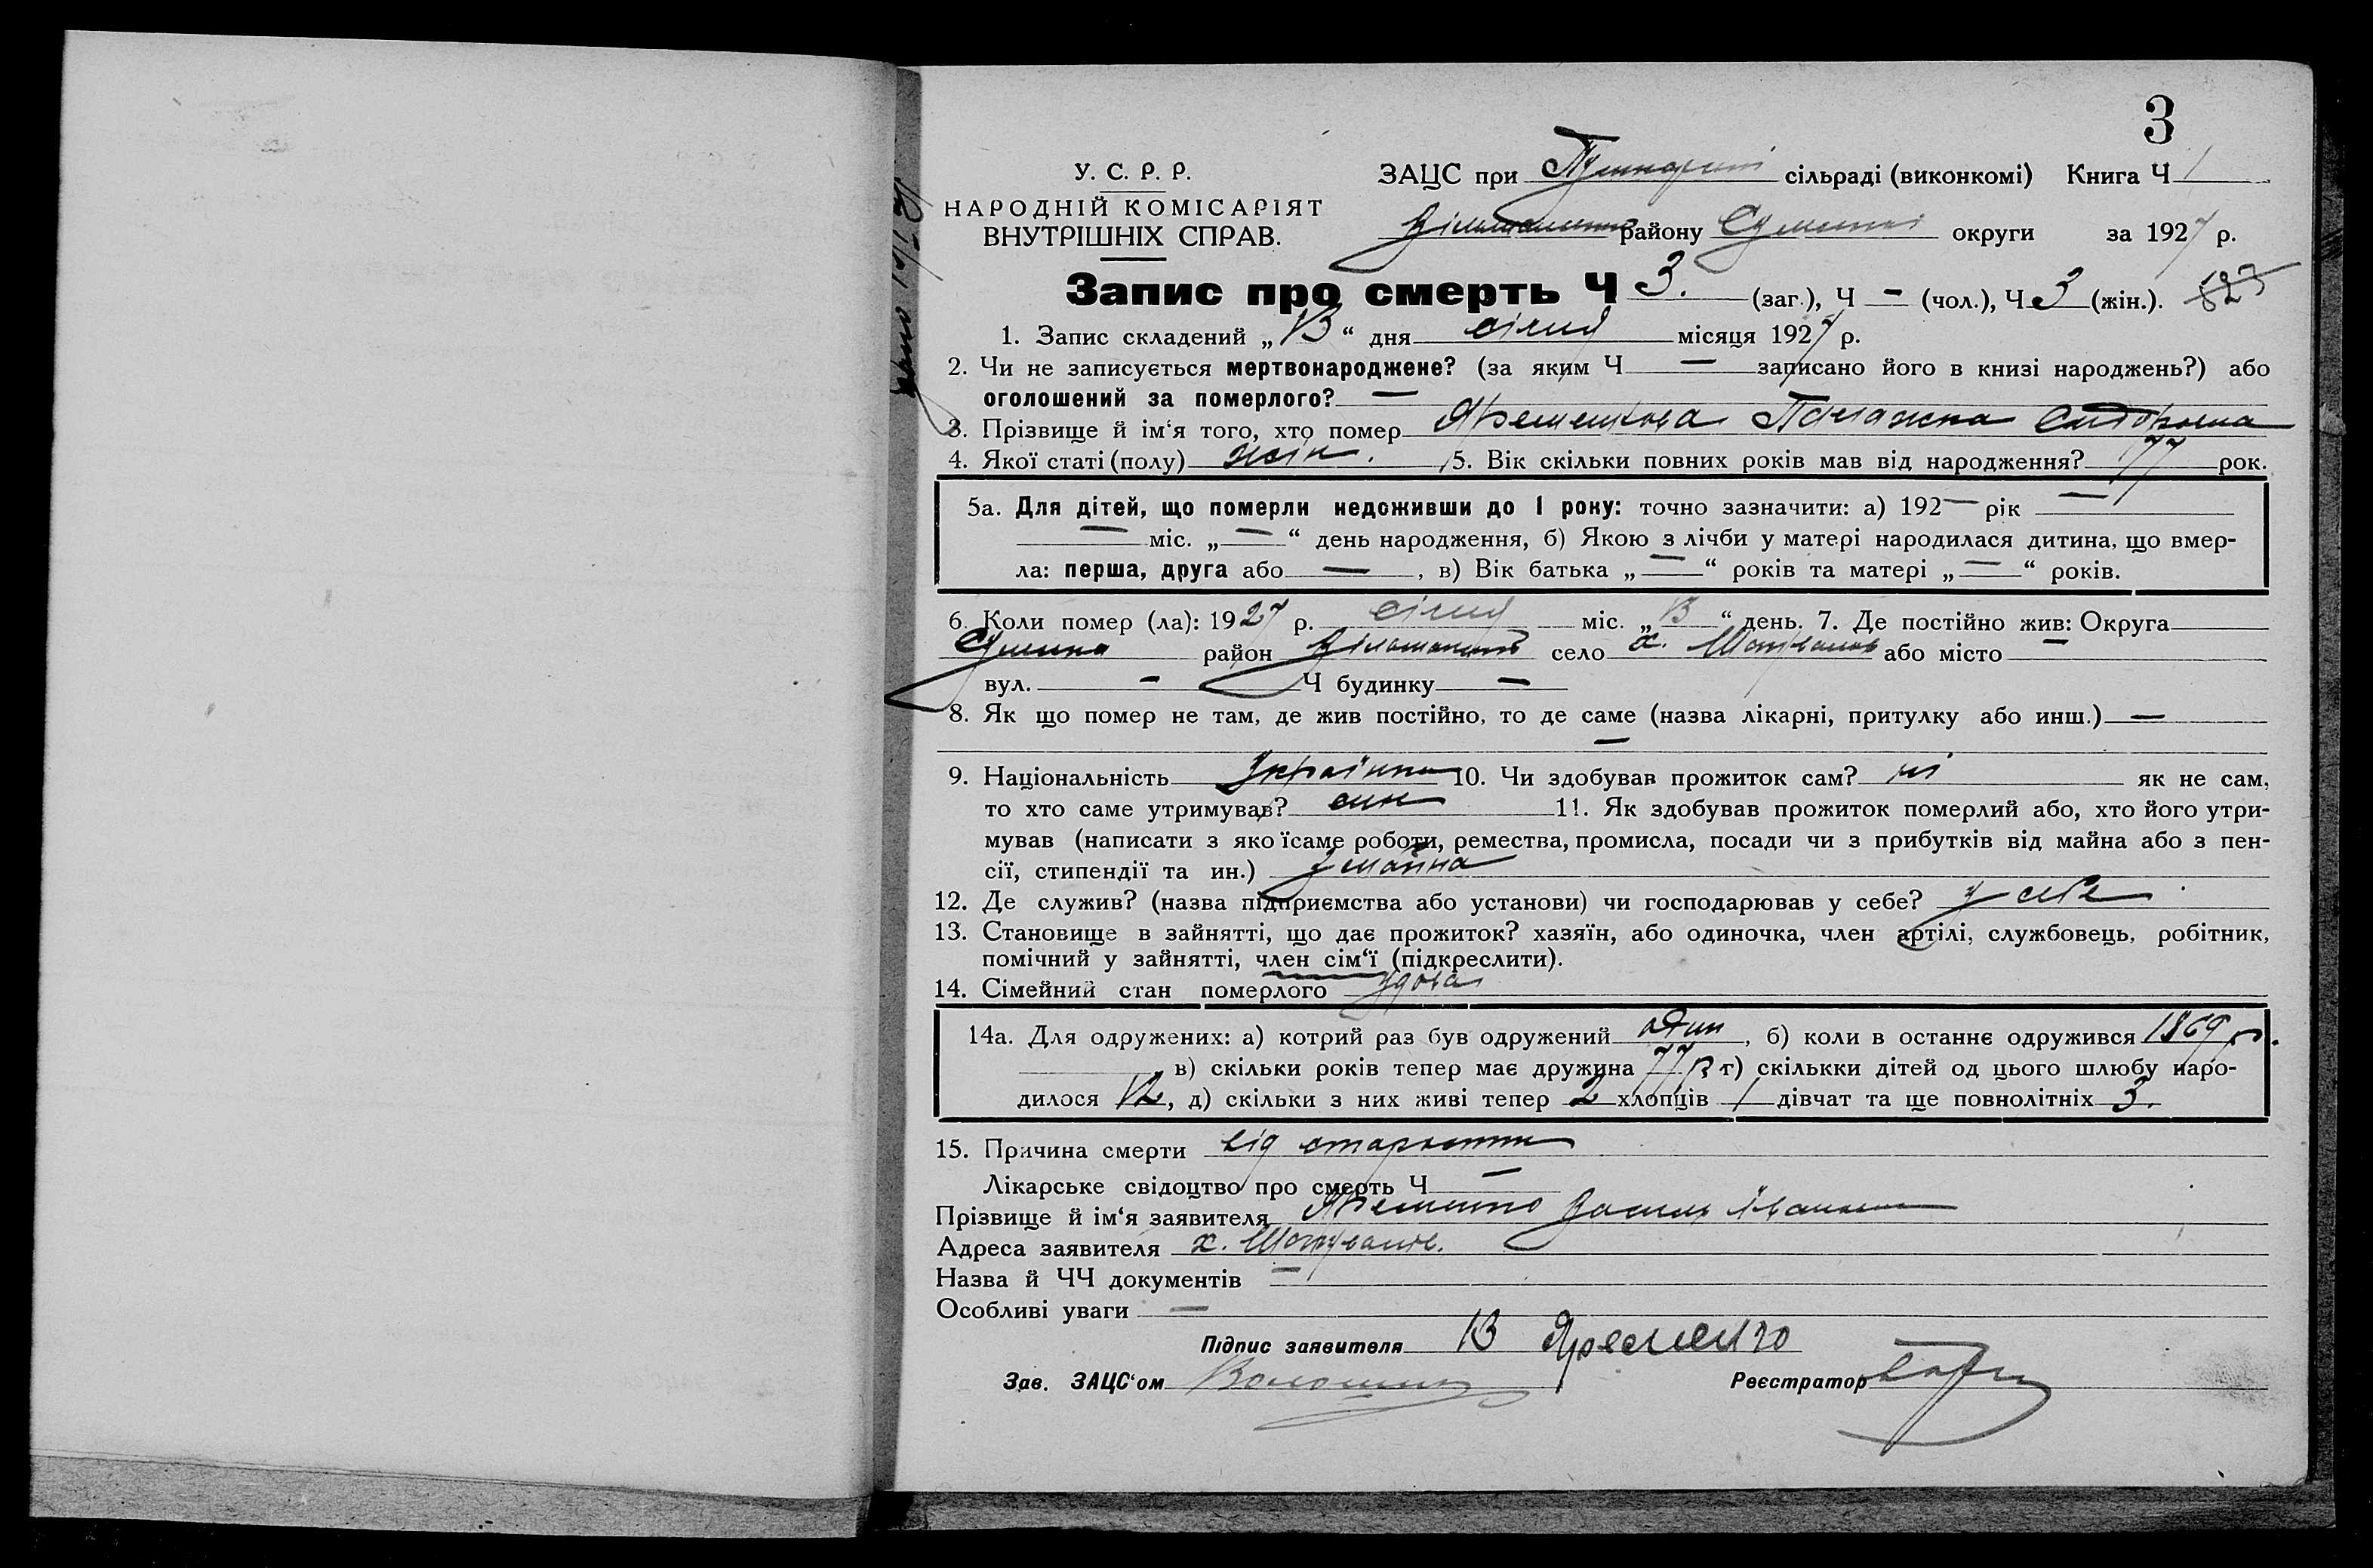 3
У. С. Р. Р.
НАРОДНІЙ КОМІСАРІЯТ
ВНУТРІШНІХ СПРАВ.
ЗАЦС при сільраді (виконкомі) Книга Ч 1
району Сумської округи за 1927 р.
Запис про смерть Ч 3. (заг.), Ч — (чол.), Ч 3 (жін.).
1. Запис складений „13“ дня січня місяця 1927 р.
2. Чи не записується мертвонароджене? (за яким Ч — записано його в книзі народжень?) або
оголошений за померлого? —
3. Прізвище й ім‘я того, хто помер Яременкова Пелажка Сидоровна
4. Якої статі (полу) жін. 5. Вік скільки повних років мав від народження? 77 рок.
5а. Для дітей, що померли недоживши до 1 року: точно зазначити: а) 192— рік —
— міс. „—“ день народження, б) Якою з лічби у матері народилася дитина, що вмер-
ла: перша, друга або —, в) Вік батька „—“ років та матері „—“ років.
6. Коли помер (ла): 1927 р. січня міс. „13“ день. 7. Де постійно жив: Округа
Сумська район село х. або місто —
вул. — Ч будинку —
8. Як що помер не там, де жив постійно, то де саме (назва лікарні, притулку або инш.) —
—
9. Національність Українка 10. Чи здобував прожиток сам? ні як не сам,
то хто саме утримував? син 11. Як здобував прожиток померлий або, хто його утри-
мував (написати з якоїсаме роботи, ремества, промисла, посади чи з прибутків від майна або з пен-
сії, стипендії та ин.) з майна
12. Де служив? (назва підприємства або установи) чи господарював у себе? у себе
13. Становище в зайнятті, що дає прожиток? хазяїн, або одиночка, член артілі, службовець, робітник,
помічний у зайнятті, член сім‘ї (підкреслити).
14. Сімейний стан померлого удова
14а. Для одружених: а) котрий раз був одружений один, б) коли в останнє одружився 1869 р.
в) скільки років тепер має дружина 77 р. г) скількки дітей од цього шлюбу наро-
дилося 12, д) скільки з них живі тепер 2 хлопців 1 дівчат та ще повнолітніх 3.
15. Причина смерти від старости
Лікарське свідоцтво про смерть Ч —
Прізвище й ім‘я заявителя Яременко Василь Іванович
Адреса заявителя х.
Назва й ЧЧ документів —
Особливі уваги —
Підпис заявителя В Яременко
Зав. ЗАЦС‘ом Волошин Реєстратор